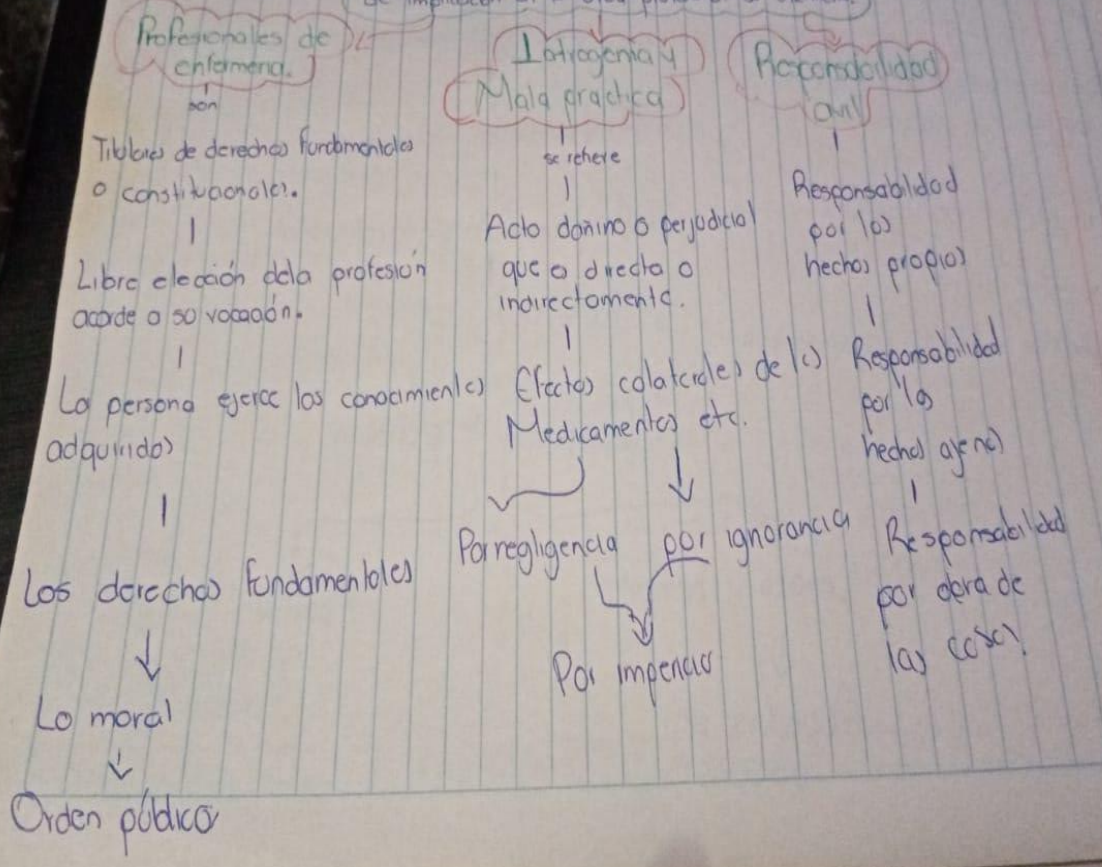 Profesionales de
enfermeria.
son
Titulares de derechos fundamentales
o constitucionales.
Libre elección dela profesión
acorde a su vocación.
La persona ejerce los conocimientos
adquiridos
Los derechos fundamentales
Lo moral
Orden público
Iatrogenia y
Mala practica
se refiere
Acto danino o perjudicial
que o directa o
indirectamente.
Efectos colaterales de los
Medicamentos etc.
Por negligencia
por ignorancia
Por impericia
Responsabilidad
civil
Responsabilidad
por los
hechos propios
Responsabilidad
por los
hechos ajenos
Responsabilidad
por de
las cosas